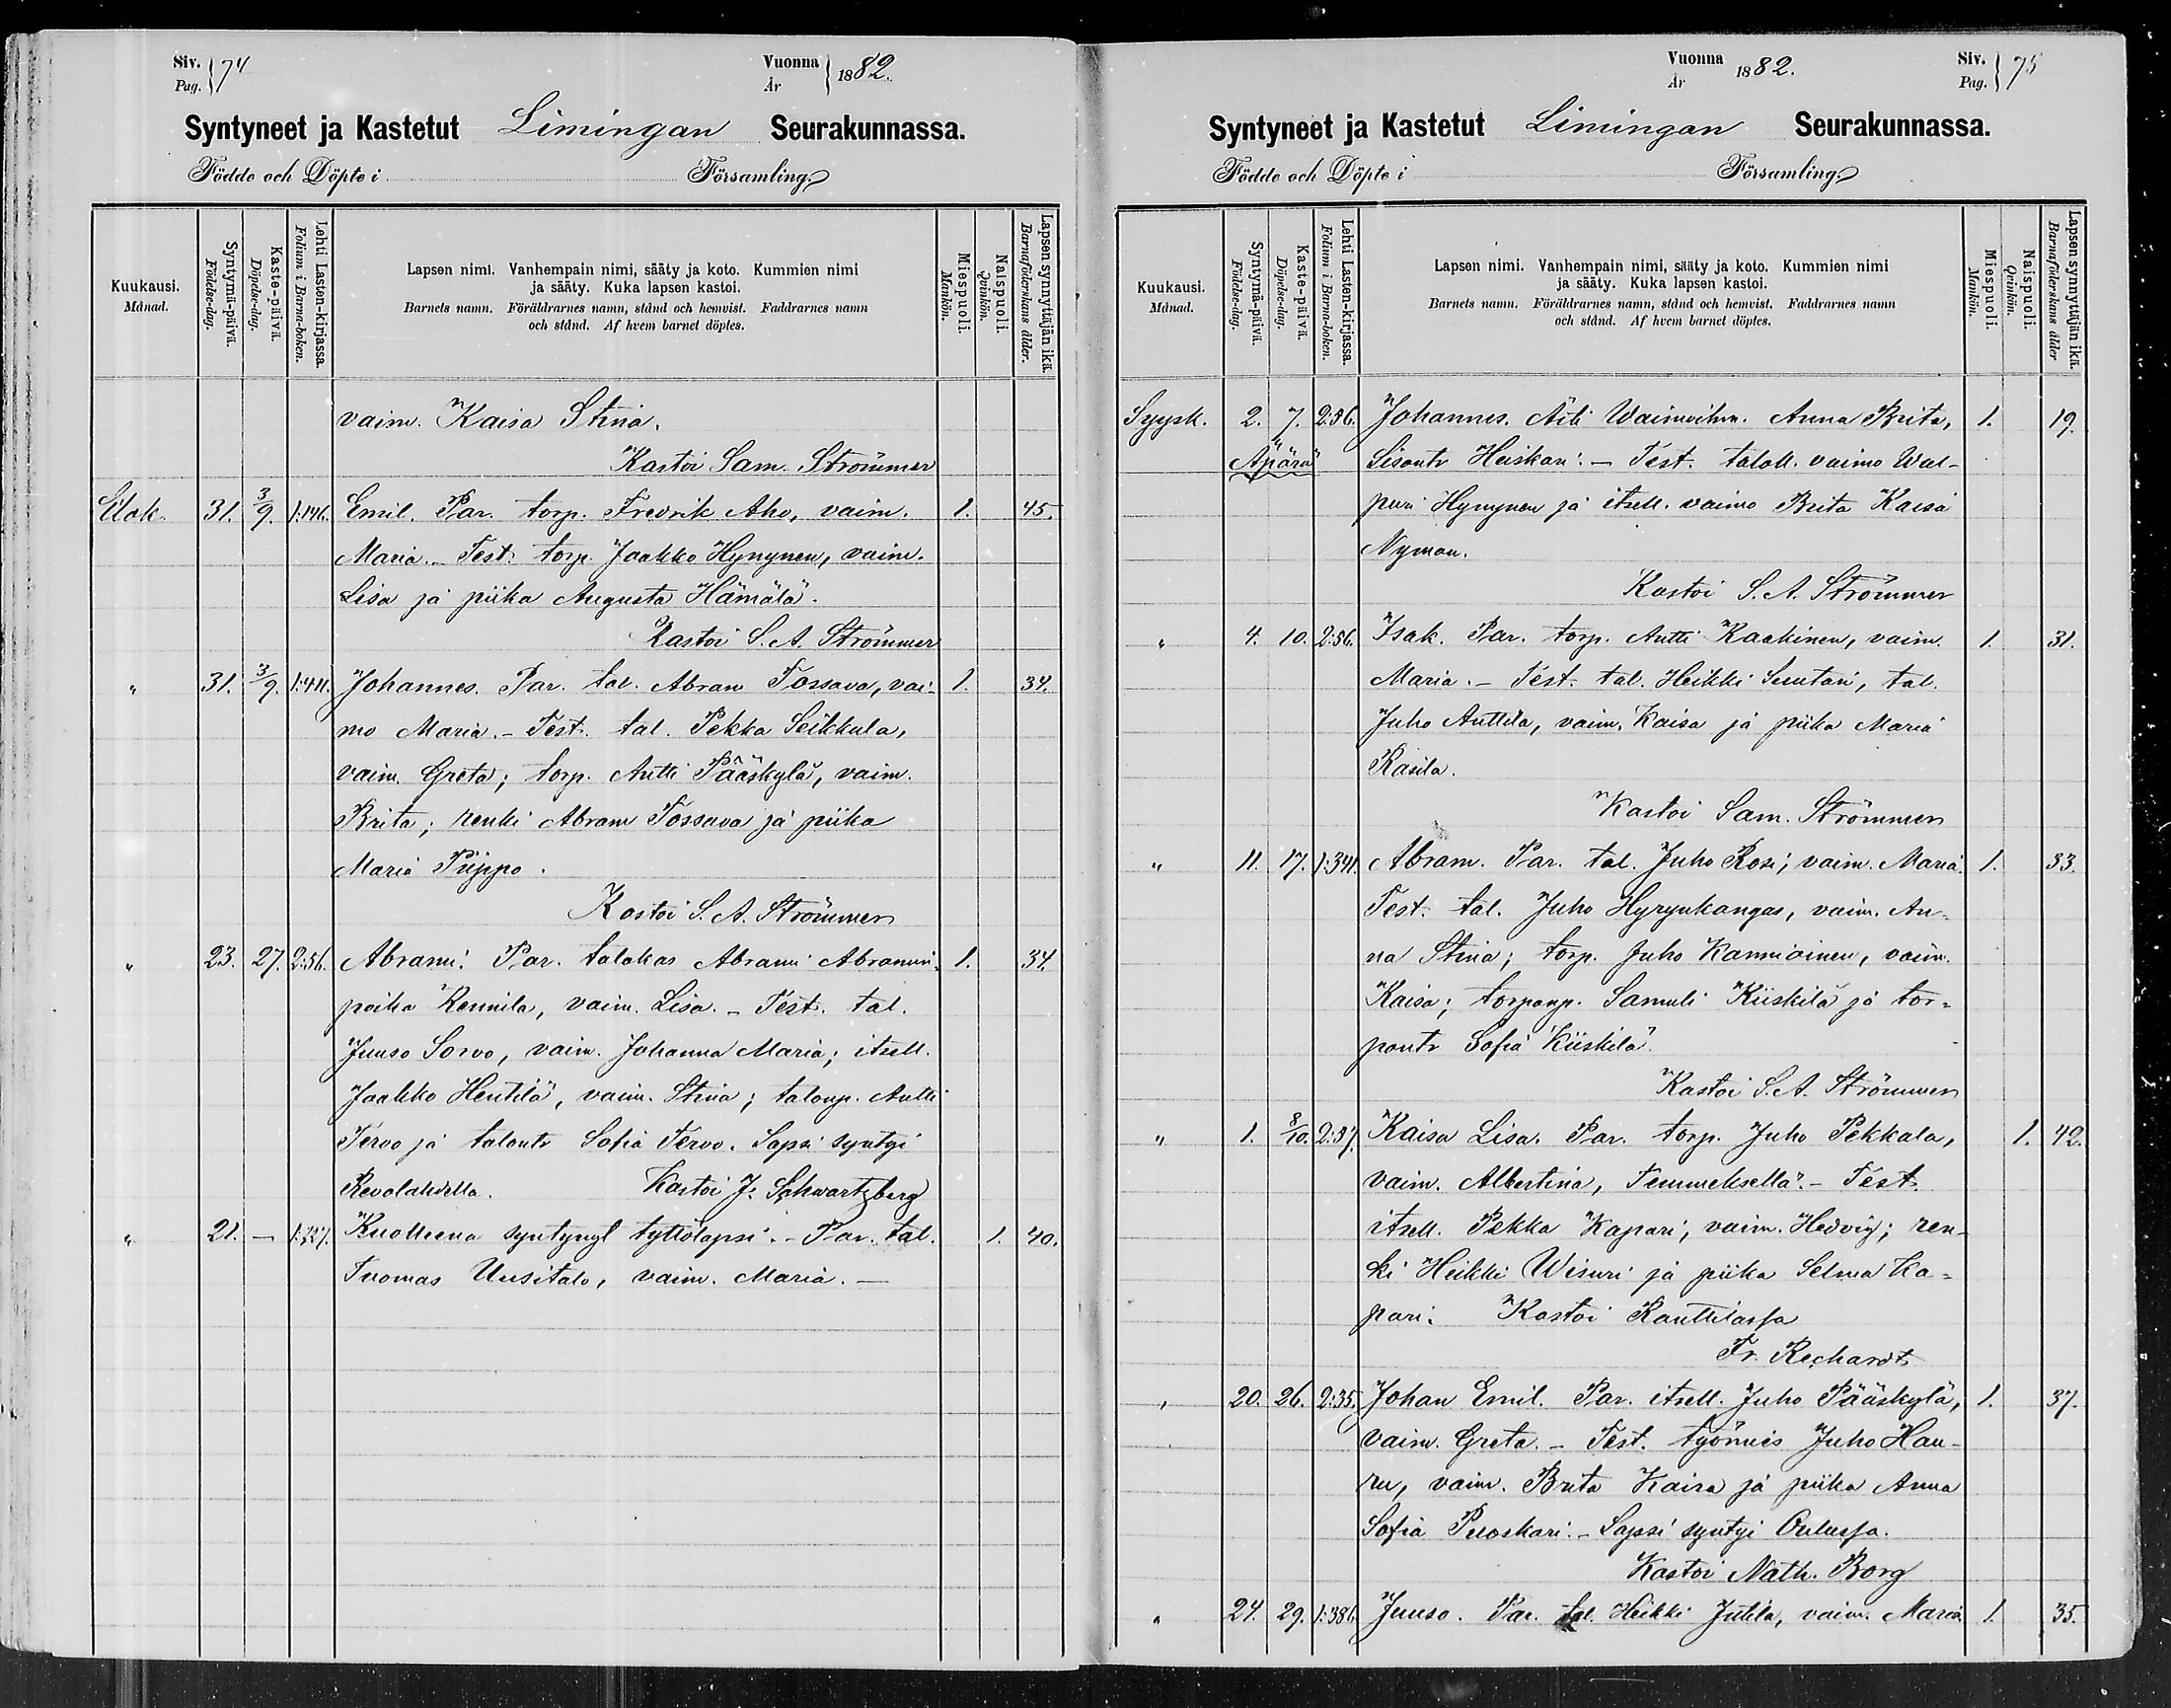 Siv. Pag. 74
Vuonna År 1882.
Syntyneet ja Kastetut Limingan Seurakunnassa.
Födde och Döpte i Församling
Kuukausi. Månad.
Syntymä-päivä. Födelse-dag.
Kaste-päivä. Döpelse-dag.
Lehti Lasten-kirjassa. Folium i Barna-boken.
Lapsen nimi. Vanhempain nimi, sääty ja koto. Kummien nimi
ja sääty. Kuka lapsen kastoi.
Barnets namn. Föräldrarnes namn, stånd och hemvist. Faddrarnes namn
och stånd. Af hvem barnet döptes.
Miespuoli. Mankön.
Naispuoli. Qvinkön.
Lapsen synnyttäjän ikä. Barnaföderskans ålder.
vaim. Kaisa Stina.
Kastoi Sam. Strömmer
Elok. 31. 3/9. 1:146. Emil. Par. torp. Fredrik Aho, vaim. 1. 45.
Maria. - Test. torp. Jaakko Hynynen, vaim.
Lisa ja piika Augusta Hämälä.
Kastoi S. A. Strömmer
" 31. 3/9. 1:411. Johannes. Par. tal. Abram Tossava, vai- 1. 34.
mo Maria. - Test. tal. Pekka Seikkula,
vaim. Greta; torp. Antti Pääskylä, vaim.
Brita; renki Abram Tossava ja piika
Maria Piippo.
Kastoi S. A. Strömmer
" 23. 27. 2:56. Abrami. Par. talokas Abrami Abramin- 1. 34.
poika Rennila, vaim. Lisa. - Test. tal.
Juuso Sorvo, vaim. Johanna Maria; itsell.
Jaakko Hentilä, vaim. Stina; talonp. Antti
Tervo ja talontr Sofia Tervo. Lapsi syntyi
Revolahdella. Kastoi J. Schwartzberg
" 21. - 1:327. Kuolleena syntynyt tyttölapsi. - Par. tal. 1. 40.
Tuomas Uusitalo, vaim. Maria. -
Vuonna År 1882.
Siv. Pag. 75
Syntyneet ja Kastetut Limingan Seurakunnassa.
Födde och Döpte i Församling
Kuukausi. Månad.
Syntymä-päivä. Födelse-dag.
Kaste-päivä. Döpelse-dag.
Lehti Lasten-kirjassa. Folium i Barna-boken.
Lapsen nimi. Vanhempain nimi, sääty ja koto. Kummien nimi
ja sääty. Kuka lapsen kastoi.
Barnets namn. Föräldrarnes namn, stånd och hemvist. Faddrarnes namn
och stånd. Af hvem barnet döptes.
Miespuoli. Mankön.
Naispuoli. Qvinkön.
Lapsen synnyttäjän ikä. Barnaföderskans ålder
Syysk. 2. 7. 2:56. Johannes. Äiti Waimoihm. Anna Brita, 1. 19.
Äpärä Lisantr Heiskari. - Test. taloll. vaimo Wal-
puri Hynynen ja itsell. vaimo Brita Kaisa
Nyman.
Kastoi S. A. Strömmer
" 4. 10. 2:56. Isak. Par. torp. Antti Kaakinen, vaim. 1. 31.
Maria. - Test. tal. Heikki Suutari, tal.
Juho Anttila, vaim. Kaisa ja piika Maria
Rasila.
Kastoi Sam. Strömmer
" 11. 17. 1:341. Abram. Par. tal. Juho Rosi; vaim. Maria. 1. 33.
Test. tal. Juho Hyrynkangas, vaim. An-
na Stina; torp. Juho Kanniainen, vaim.
Kaisa; torpanp. Samuli Kiiskilä ja tor-
pantr Sofia Kiiskilä.
Kastoi S. A. Strömmer
" 1. 8/10. 2:37. Kaisa Lisa. Par. torp. Juho Pekkala, 1. 42.
vaim. Albertina, Temmeksellä. - Test.
itsell. Pekka Kapari, vaim. Hedvig; ren-
ki Heikki Wisuri ja piika Selma Ka-
pari. Kastoi Ranttilassa
Fr. Rechardt
" 20. 26. 2:35. Johan Emil. Par. itsell. Juho Pääskylä, 1. 37.
vaim. Greta. - Test. työmies Juho Hau-
ru, vaim. Brita Kaisa ja piika Anna
Sofia Puoskari. - Lapsi syntyi Oulussa.
Kastoi Nath. Borg
" 24. 29. 1:386. Juuso. Par. tal. Heikki Jutila, vaim. Maria 1. 35.